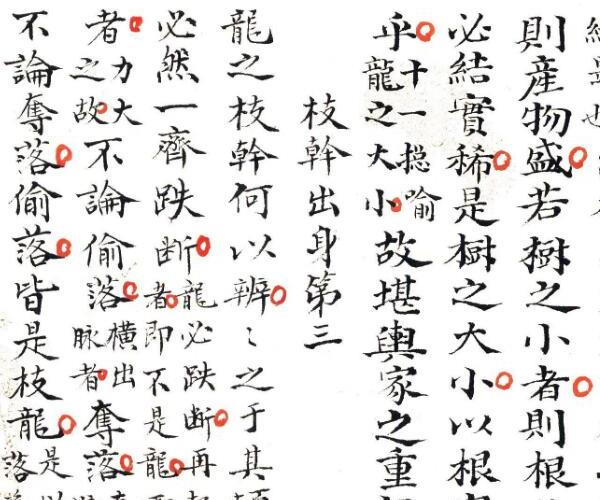 是也
則產物盛若樹之小者則根
必結實稀是樹之大小以根
乎十一揔喻龍之大小故堪輿家之重
枝幹出身第三
龍之枝幹何以辨〻之于其
必然一齊跌断龍必跌断再者即不是龍
者力大之故不論偷落横出脉者奪落
不論奪落偷落皆是枝龍是落